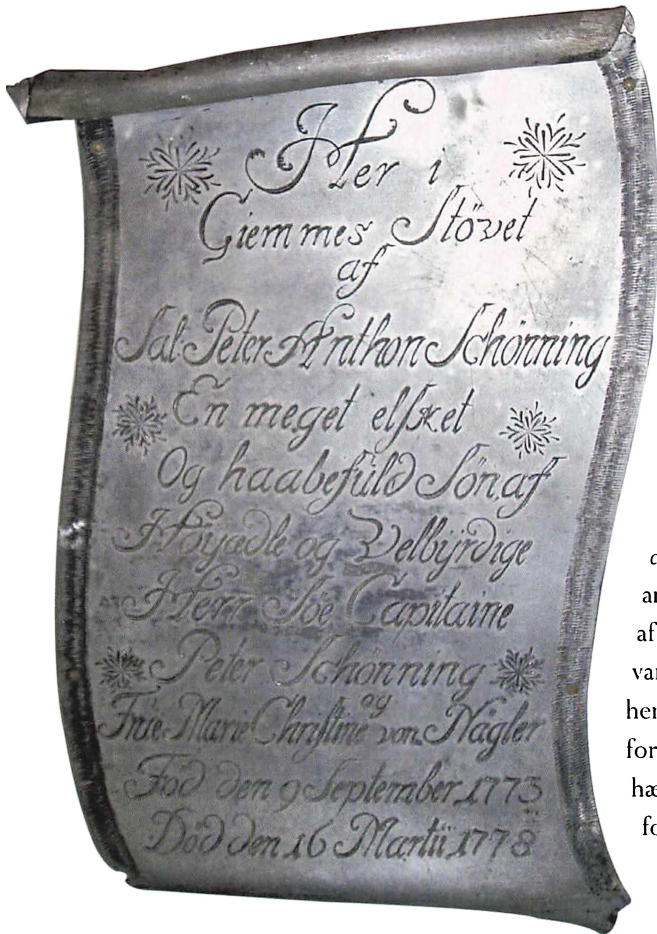 Her i
Giemmes Stövet
af
Sal. Peter Anthon Schönning
En meget elsket
Og haabefuld Sön af
Höyædle og Velbÿrdige
Herr Söe Capitaine
Peter Schönning
og
Frue Marie Christine von Nagler
Föd den 9 September 1773
Död den 16 Martii 1778
af
var
her
for
hæ
fo